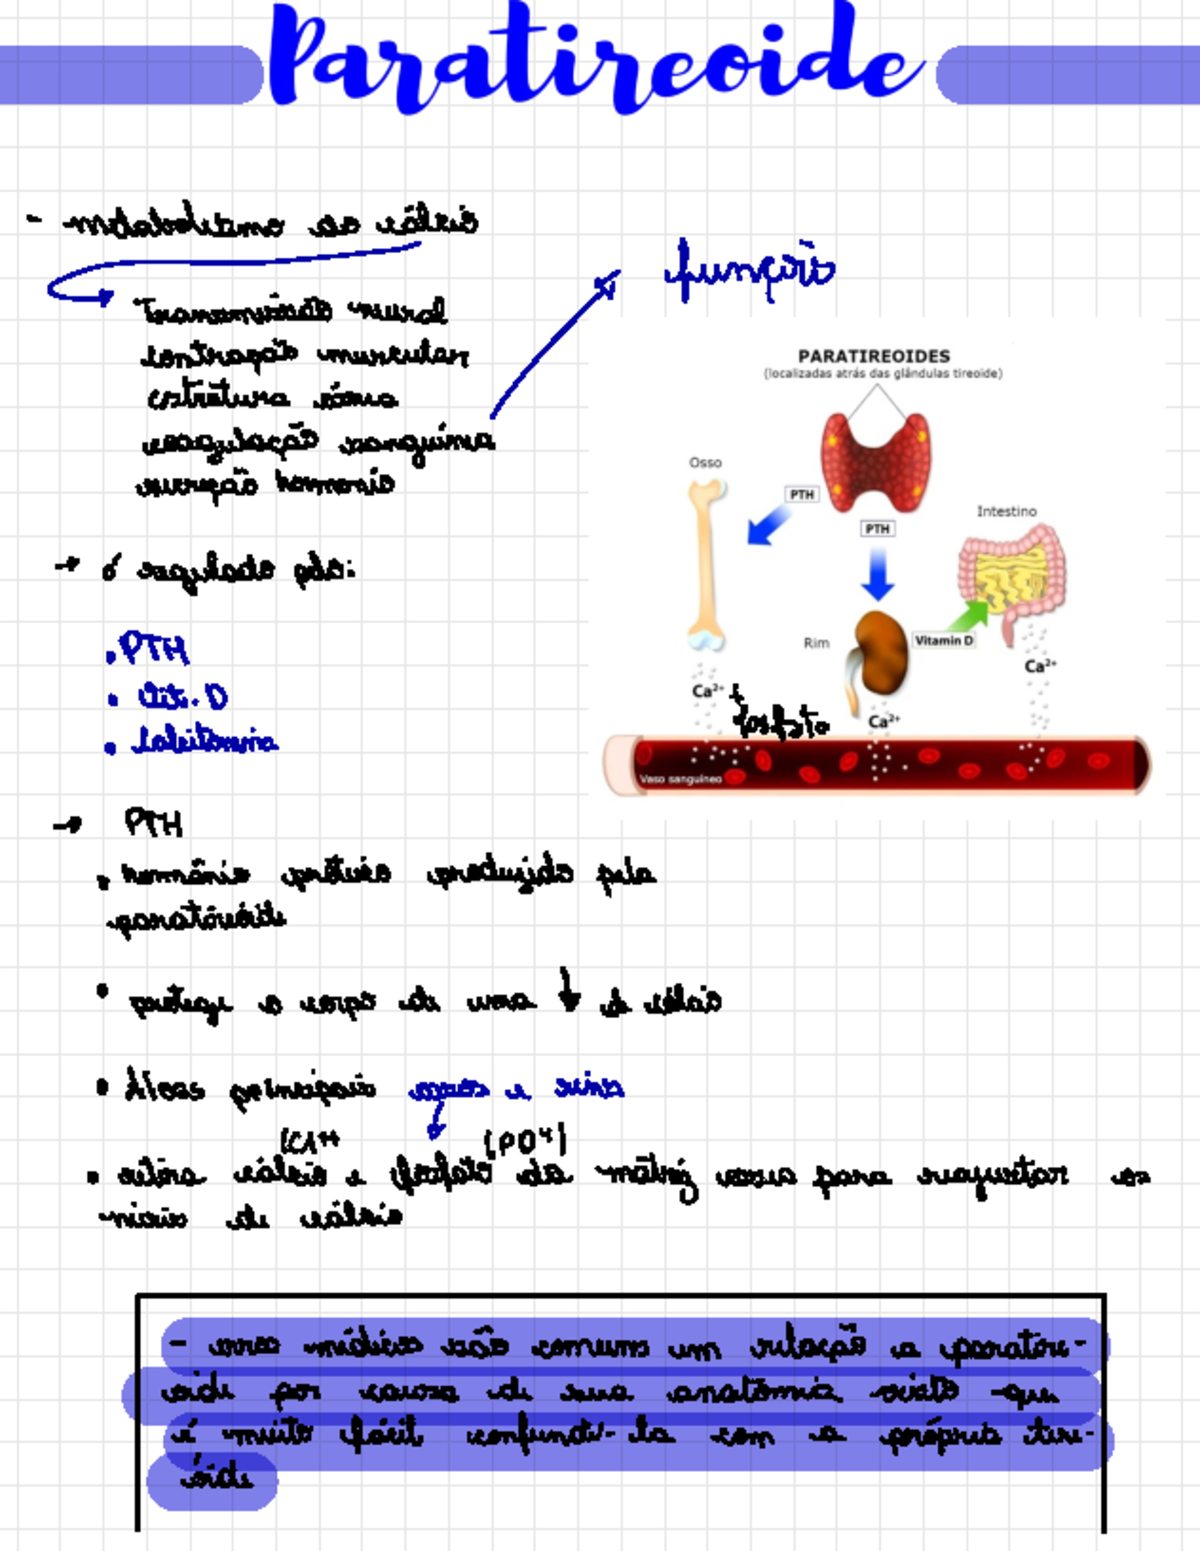 Paratireoide
- metabolismo do cálcio
Transmissão neural
contração muscular
estrutura óssea
coagulação sanguínea
secreção hormonio
função
PARATIREOIDES
(localizadas atrás das glândulas tireoide)
Osso
PTH
PTH
Intestino
Rim
Vitamin D
Ca²⁺
Ca²⁺ +
fosfato
Ca²⁺
Vaso sanguíneo
→ é regulado pelo:
• PTH
• Vit. D
• Calcitonina
→ PTH
• hormônio protéico produzido pela
paratireóide
• protege o corpo de uma ↓ de cálcio
• Alvos principais ossos e rins
(Ca++ (PO4)
• retira cálcio e fosfato da matriz óssea para reajustar os
níveis de cálcio
- erros médicos são comuns em relação a paratire-
oide por causa de sua anatômia, visto que
é muito fácil confundi-la com a própria tire-
óide